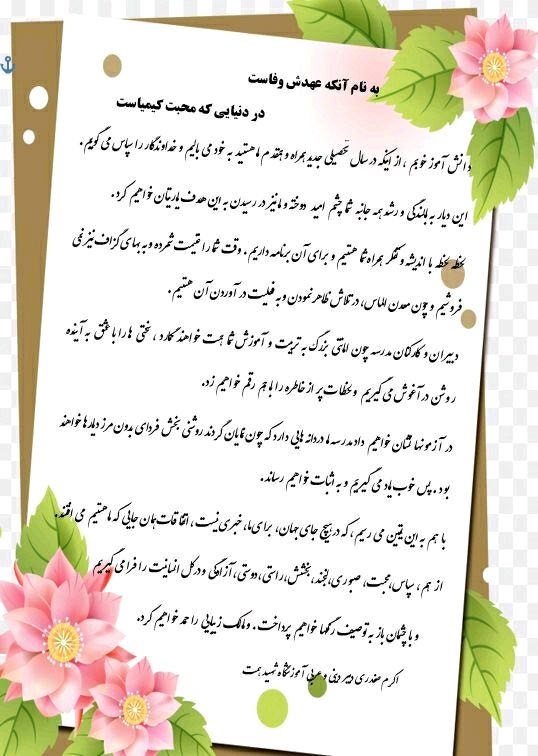 به نام آنکه عهدش وفاست
در دنیایی که محبت کیمیاست
دانش آموز خوبم ، از اینکه در سال تحصیلی جدید همراه و همقدم ما هستید به خود می بالیم و خداوندگار را سپاس می گویم.
این دیار به بالندگی و رشد همه جانبه شما چشم امید دوخته و ما نیز در رسیدن به این هدف یارتان خواهیم کرد.
لحظه لحظه با اندیشه و تفکر همراه شما هستیم و برای آن برنامه داریم. وقت شما را غنیمت شمرده و به بهای گزاف نیز نمی
فروشیم و چون معدن الماس، در تلاش ظاهر نمودن و به فعلیت در آوردن آن هستیم.
دبیران و کارکنان مدرسه چون امانتی بزرگ به تربیت و آموزش شما همت خواهند گمارد ، سختی ها را با عشق به آینده
روشن در آغوش می گیریم و لحظات پر از خاطره را با هم رقم خواهیم زد.
در آزمونها نشان خواهیم داد مدرسه ما دردانه هایی دارد که چون نمایان گردند روشنی بخش فردای بدون مرز دیار ما خواهند
بود . پس خوب یاد می گیریم و به اثبات خواهیم رساند.
با هم به این یقین می رسیم ، که در هیچ جای جهان، برای ما، خبری نیست، اتفاقات همان جایی که ما هستیم می افتد.
از هم ، سپاس، محبت، صبوری، لبخند، بخشش، راستی، دوستی، آزادگی و در کل انسانیت را فرا می گیریم
و با چشمان باز به توصیف رنگها خواهیم پرداخت . و مالک زیبایی را حمد خواهیم کرد.
اکرم صفدری دبیر دینی و عربی آموزشگاه شهید همت